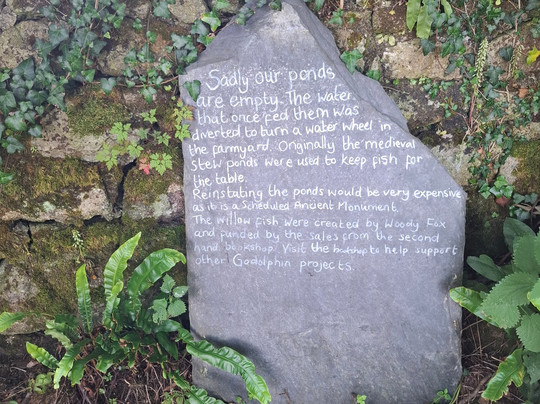 Sadly our ponds
are empty. The water
that once fed them was
diverted to turn a water wheel in
the farmyard. Originally the medieval
stew ponds were used to keep fish for
the table.
Reinstating the ponds would be very expensive
as it is a Scheduled Ancient Monument.
The willow fish were created by Woody Fox
and funded by the sales from the second
hand bookshop. Visit the bookshop to help support
other Godolphin projects.